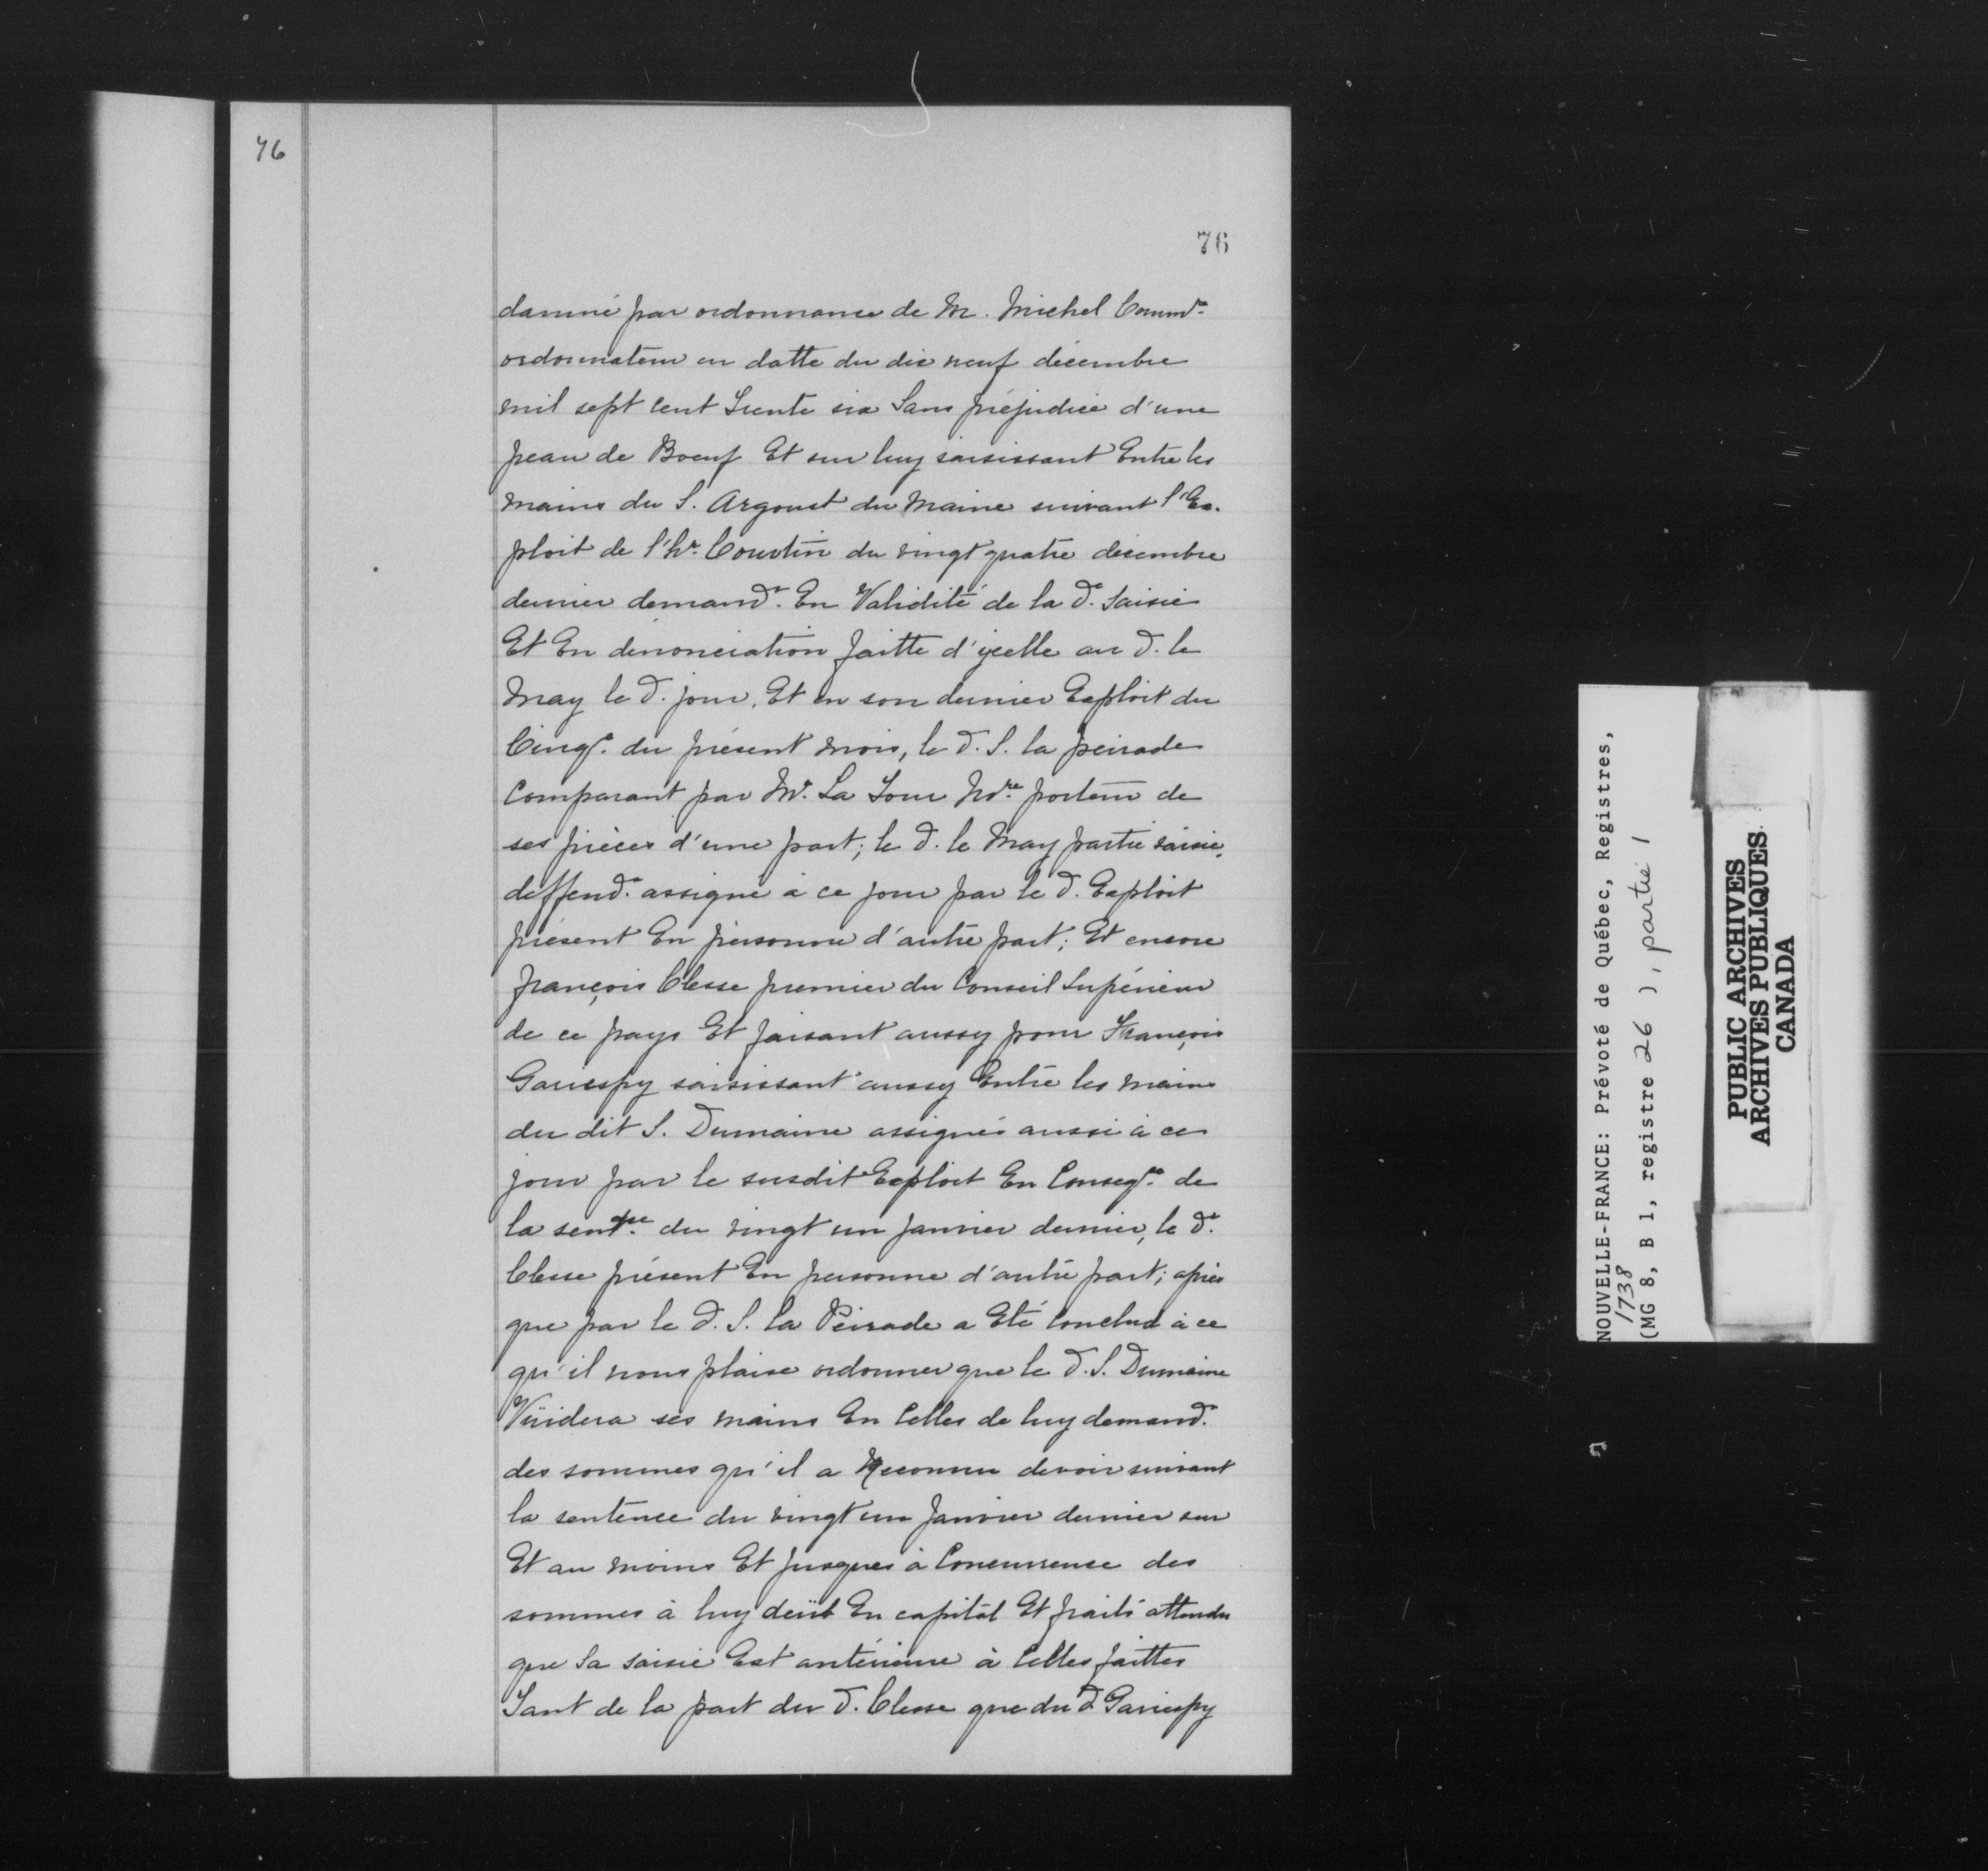 76
76
damné par ordonnance de M. Michel Commre
ordonnateur en datte du dix neuf décembre
mil sept cent Trente six Sans préjudice d'une
peau de Boeuf Et sur luy saisissant Entre les
mains du S. Argoust du Maine suivant l'Ex-
ploit de l'hr. Courtin du vingt quatre décembre
dernier demandr. En Validité de la de. Saisie
Et En dénonciation faitte d'ycelle au d. le
May le d. jour, Et en son dernier Exploit du
Cinqe. du présent mois, le d. S. la peirade
Comparant par Mr. La Tour Nore. porteur de
ses pièces d'une part; le d. le May partie saisie,
deffendr. assigné à ce jour par le d. Exploit
présent En personne d'autre part; Et encore
françois Clesse premier du Conseil Supérieur
de ce pays Et faisant aussy pour François
Gariespy saisissant aussy Entre les mains
du dit S. Dumaine assignés aussi à ce
jour par le susdit Exploit En Conseqce. de
la sentce. du vingt un janvier dernier, le dr.
Clesse présent En personne d'autre part; après
que par le d. S. la Peirade a Eté Conclud à ce
qu'il nous plaise ordonner que le d. S. Dumaine
Vüidera ses mains En Celles de luy demandr.
des sommes qu'il a Reconnu devoir suivant
la sentence du vingt un Janvier dernier sur
Et au moins Et jusques à Concurrence des
sommes à luy deüb En capital Et frais attendu
que Sa saisie Est antérieure à Celles faittes
Tant de la part du d. Clesse que du d. Gariespy
NOUVELLE-FRANCE: Prévoté de Québec, Registres,
1738
(MG 8, B 1, registre 26 ), partie 1
PUBLIC ARCHIVES
ARCHIVES PUBLIQUES
CANADA